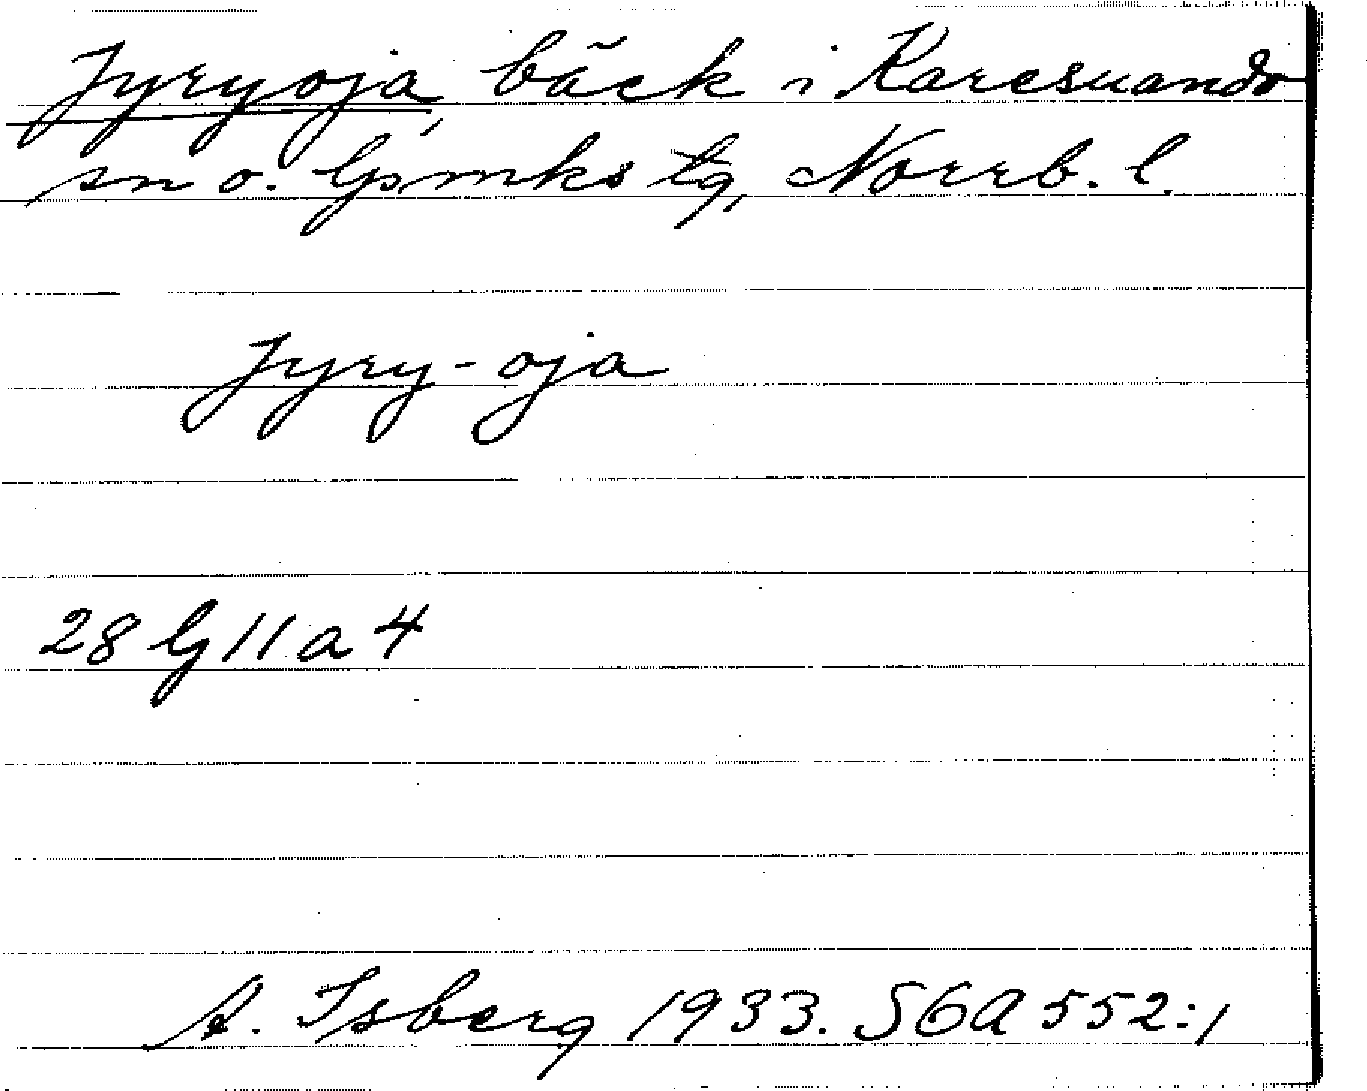 Jyryoja, bäck i Karesuando
sn o. lpmks tg, Norrb. l.
Jyry-oja
28 lg 11 a 4
A. Isberg 1933. SGA 552:1